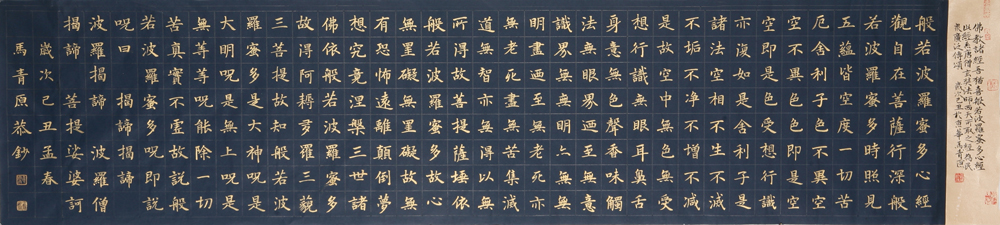 佛教諸經吾獨喜般若波羅蜜多心經
以經唐僧玄奘法師西天所取之經爲民
衆廣泛傳頌 歲次己丑於京華馬青原
般若波羅蜜多心經
觀自在菩薩行深般
若波羅蜜多時照見
五蘊皆空度一切苦
厄舍利子色不異空
空不異色色即是空
空即是色受想行識
亦復如是舍利子是
諸法空相不生不滅
不垢不淨不增不減
是故空中無色無受
想行識無眼耳鼻舌
身意無色聲香味觸
法無眼界乃至無意
識界無無明亦無無
明盡乃至無老死亦
無老死盡無苦集滅
道無智亦無得以無
所得故菩提薩埵依
般若波羅蜜多故心
無罣礙無罣礙故無
有恐怖遠離顛倒夢
想究竟涅槃三世諸
佛依般若波羅蜜多
故得阿耨多羅三藐
三菩提故知般若波
羅蜜多是大神呪是
大明呪是無上呪是
無等等呪能除一切
苦真實不虛故説般
若波羅蜜多呪即説
呪曰 揭諦揭諦
波羅揭諦 波羅僧
揭諦 菩提娑婆訶
歲次己丑孟春
馬青原恭鈔